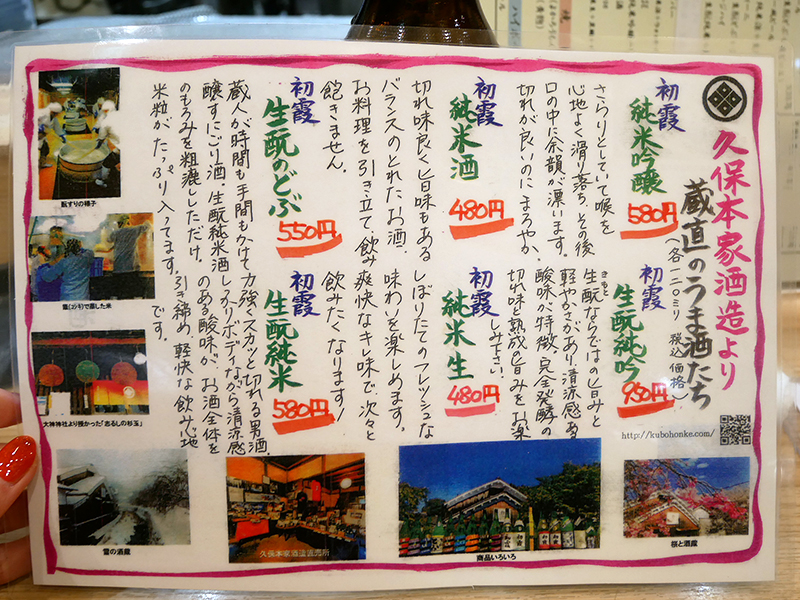 久保本家酒造より
蔵直のうま酒たち
(各一二〇ミリ 税込価格)
初霞
純米吟醸
580円
さらりとしていて喉を
心地よく滑り落ち、その後
口の中に余韻が漂います。
切れが良いのにまろやか。
初霞
純米酒
480円
切れ味良く旨味もある
バランスのとれたお酒。
お料理を引き立て、飲み
飽きません。
初霞
生酛のどぶ
550円
蔵人が時間も手間もかけて
醸すにごり酒。生酛純米酒
のもろみを粗漉ししただけ。
米粒がたっぷり入ってます。
きもと
生酛純吟
950円
生酛ならではの旨みと
軽やかさがあり、清涼感ある
酸味が特徴。完全発酵の
切れ味と熟成の旨みをお楽
しみ下さい。
初霞
純米生
480円
しぼりたてのフレッシュな
味わいを楽しめます。
爽快なキレ味で、次々と
飲みたくなります!
初霞
生酛純米
580円
力強くスカッと切れる男酒。
しっかりボディながら清涼感
のある酸味が、お酒全体を
引き締め、軽快な飲み心地
です。
http://kubohonke.com/
酛すりの様子
甑(コシキ)で蒸した米
大神神社より授かった「志るしの杉玉」
雪の酒蔵
久保本家酒造直売所
商品いろいろ
桜と酒蔵